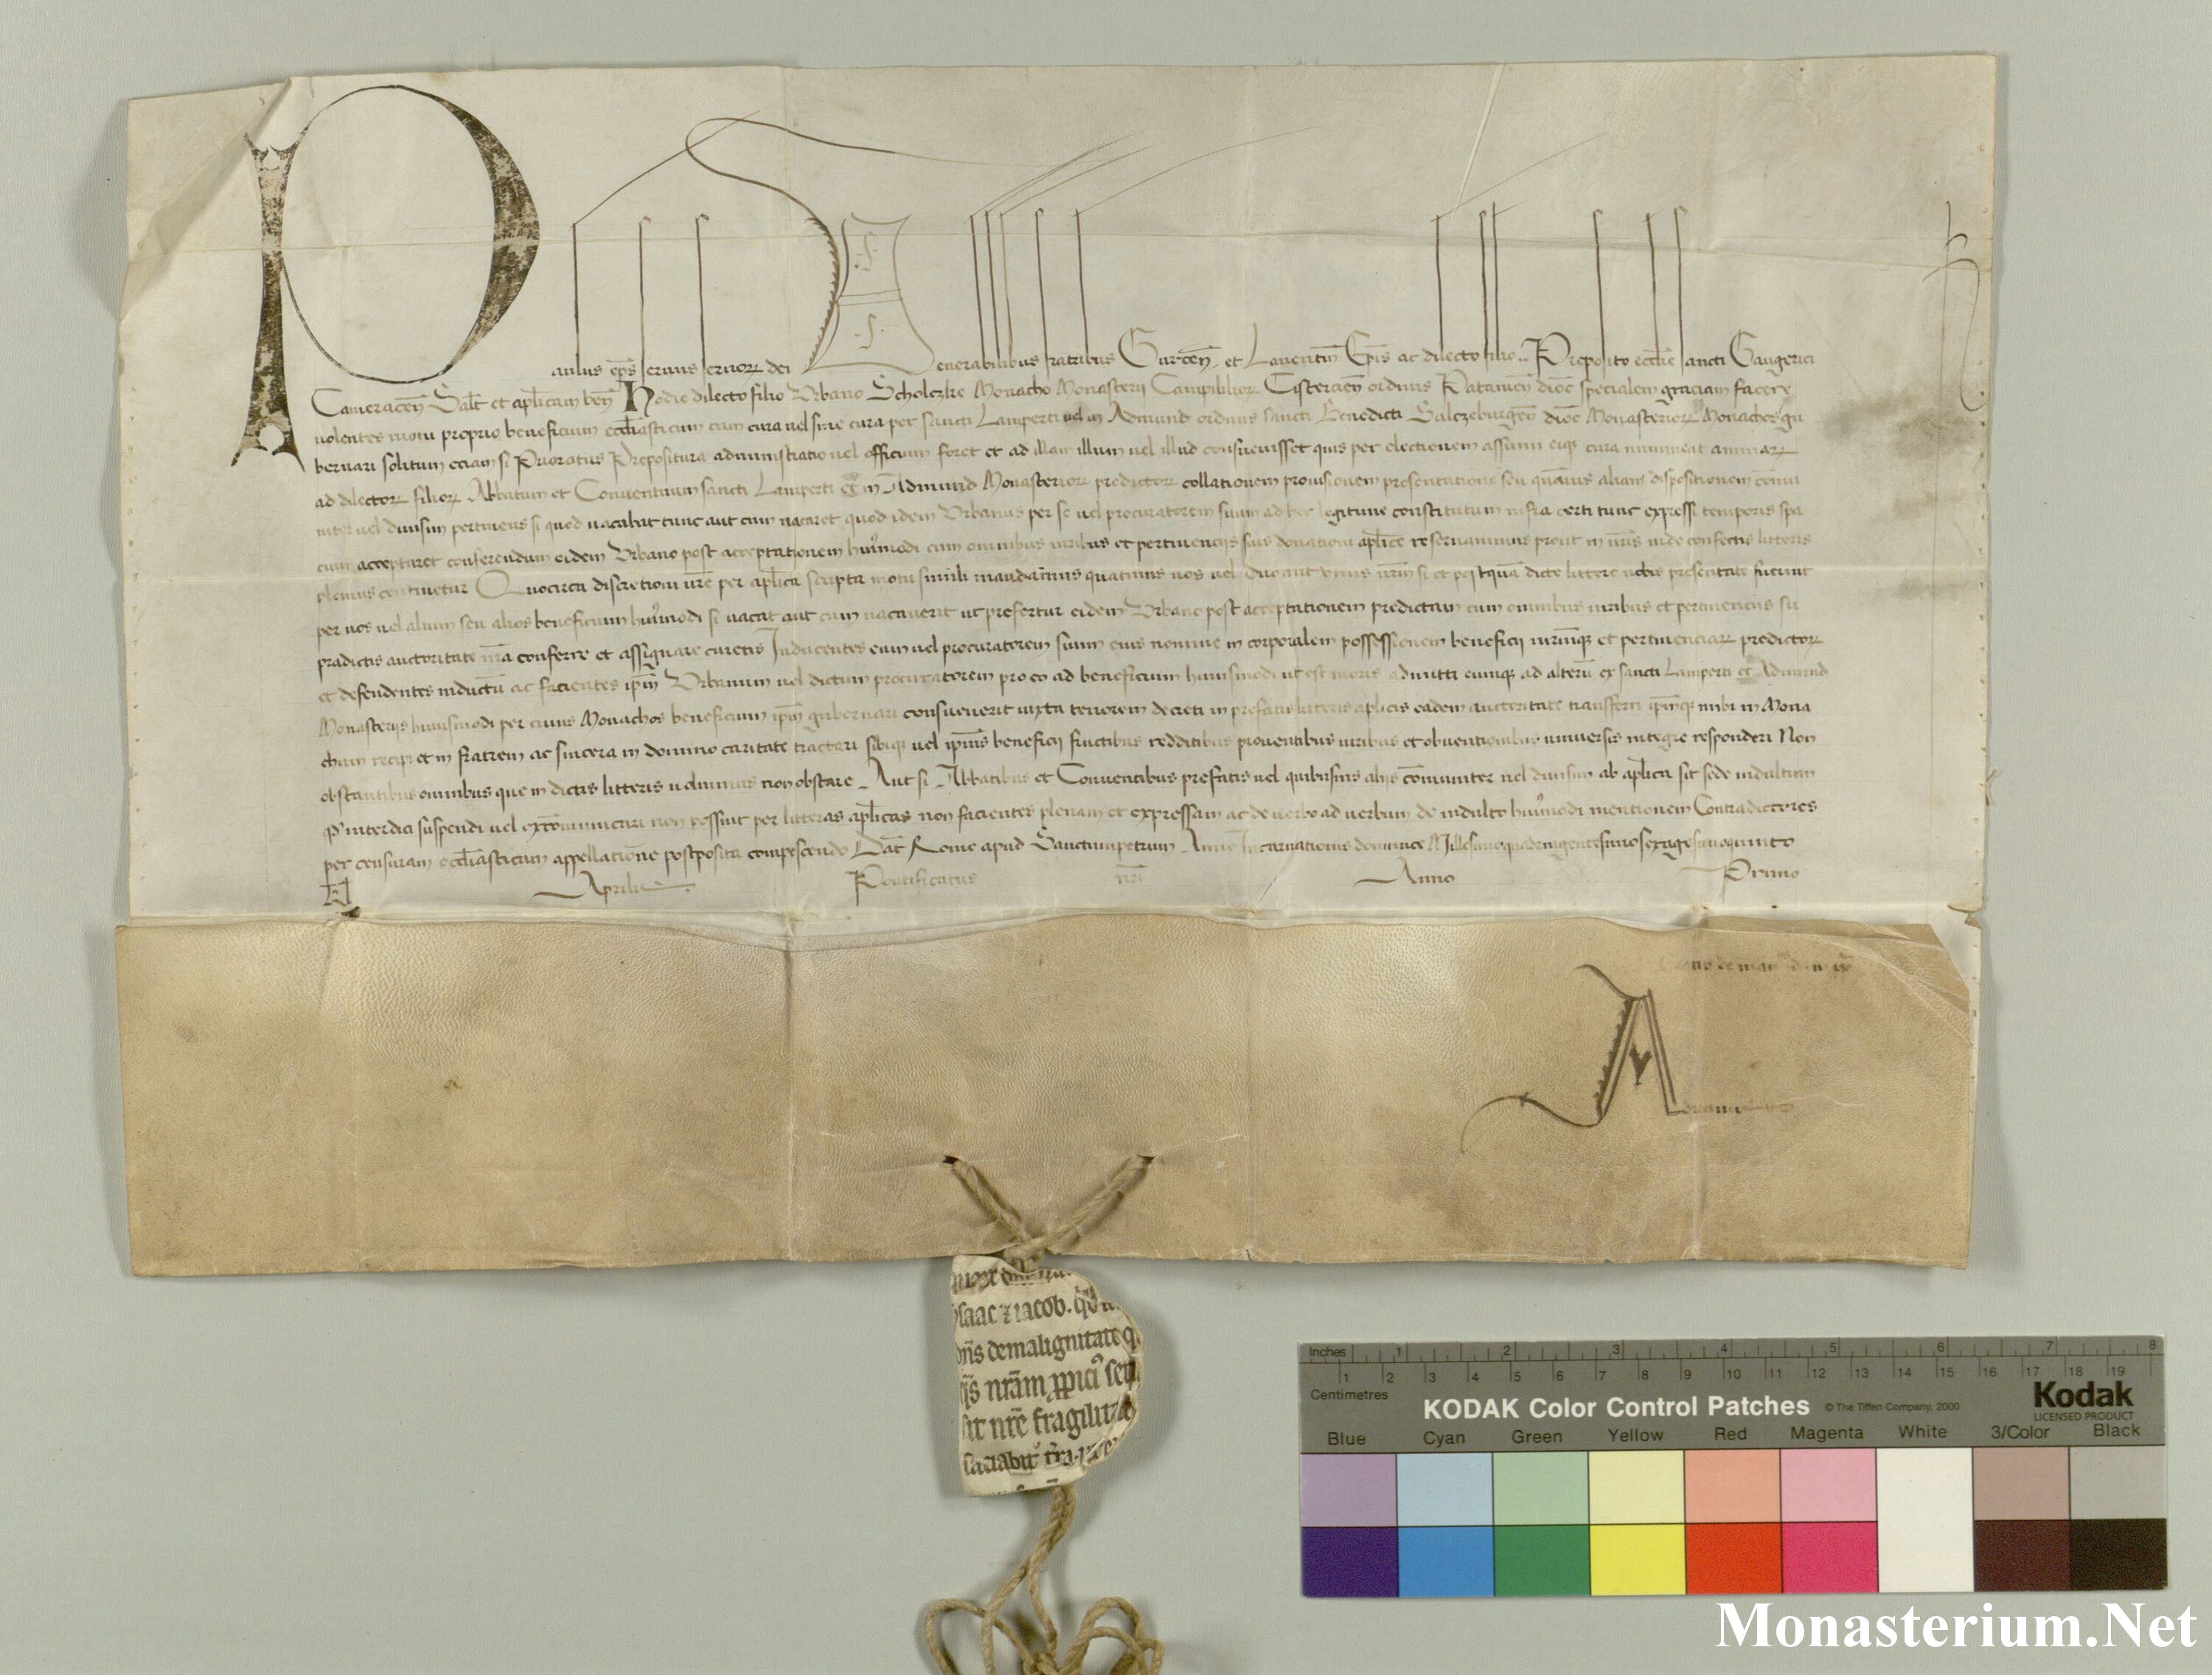 Paulus ep̄s servus servorꝝ dei Venerabilibus fratribus Gurcen̄ et Laventin̄ Ep̄is ac dilecto filio .. Preposito eccl̄ie sancti Gaugerici
Cameracen̄ Sal̄t et apl̄icam ben̄ Hodie dilecto filio Urbano Scholczke Monacho Monasterii Campililiorꝝ Cistercien̄ ordinis Patavien̄ dioc̄ specialem graciam facere
volentes motu proprio beneficium eccl̄iasticum cum cura vel sine cura per sancti Lamperti vel in Admund ordinis sancti Benedicti Salczeburgen̄ dioc̄ Monasteriorꝝ Monachos gu
bernari solitum eciam si Prioratus Prepositura administratio vel officium foret et ad illam illum vel illud consuevisset quis per electionem assumi eiqꝫ cura immineret animarꝝ
ad dilectorꝝ filiorꝝ Abbatum et Conventuum sancti Lamperti et in Admund Monasteriorꝝ predictorꝝ collationem provisionem presentationem seu quāvis aliam dispositionem cōmu
niter vel divisim pertinens si quod vacabat tunc aut cum vacaret quod idem Urbanus per se vel procuratorem suum ad hoc legitime constitutum infra certi tunc expressi temporis spa
cium acceptaret conferendum eidem Urbano post acceptationem huiꝰmodi cum omnibus iuribus et pertinenciis suis donationi apl̄ice reservavimus prout in nr̄is inde confectis litteris
plenius continetur Quocirca discretioni vr̄e per apl̄ica scripta motu simili mandamus quatinus vos vel duo aut unus vr̄m si et postquā dicte littere vobis presentate fuerint
per vos vel alium seu alios beneficium huiꝰmodi si vacat aut cum vacaverit ut prefertur eidem Urbano post acceptationem predictam cum omnibus iuribus et pertinenciis su
pradictis auctoritate nr̄a conferre et assignare curetis Inducentes eum vel procuratorem suum eius nomine in corporalem possessionem beneficii iuriumqꝫ et pertinenciarꝝ predictorꝝ
et defendentes inductū ac facientes ip̄m Urbanum vel dictum procuratorem pro eo ad beneficium huiusmodi ut est moris admitti eumqꝫ ad alterū ex sancti Lamperti et Admund
Monasteriis huiusmodi per cuius Monachos beneficium ip̄m gubernari consueverit iuxta tenorem decreti in prefatis litteris aplicis eadem auctoritate transferri ip̄mqꝫ inibi in Mona
chum recipi et in fratrem ac sincera in domino caritate tractari sibiqꝫ vel ip̄ius beneficii fructibus redditibus proventibus iuribus et obventionibus universis integre responderi Non
obstantibus omnibus que in dictis litteris volumus non obstare _ Aut si _ Abbatibus et Conventibus prefatis vel quibusvis aliis cōmuniter vel divisim ab aplica sit sede indultum
qꝫ interdici suspendi vel excōmunicari non possint per litteras apl̄icas non facientes plenam et expressam ac de verbo ad verbum de indulto huiꝰmodi mentionem Contradictores
per censuram eccl̄iasticam appellatione postposita compescendo Dat̄ Rome apud Sanctumpetrum Anno Incarnationis dominice Millesimoquadringentesimosexagesimoquinto
Aprilis Pontificatus nr̄i Anno Primo
A
ysaac ⁊ iacob.
dn̄s de malignitate
nr̄am
sit nr̄e fragilita
saciabit̉
Inches 1 2 3 4 5 6 7 8
1 2 3 4 5 6 7 8 9 10 11 12 13 14 15 16 17 18 19
Centimetres
KODAK Color Control Patches © The Tiffen Company, 2000 Kodak
LICENSED PRODUCT
Blue Cyan Green Yellow Red Magenta White 3/Color Black
Monasterium.Net